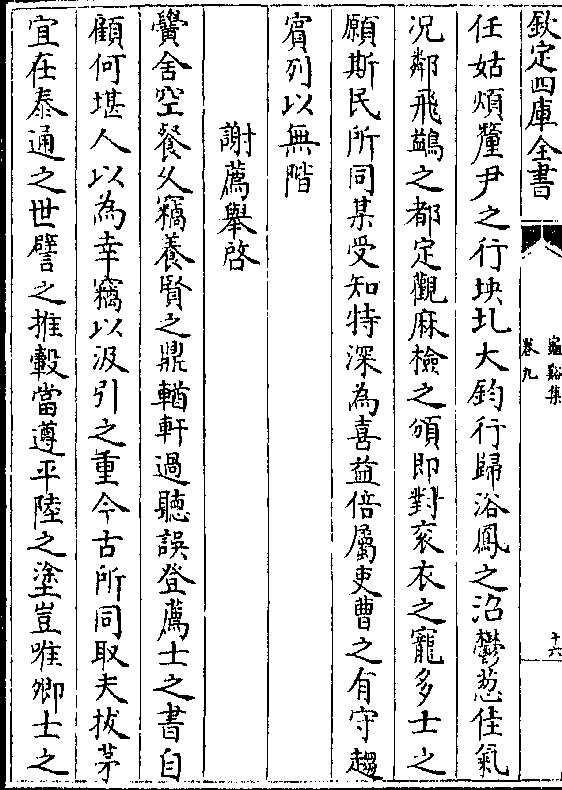 欽定四庫全書
龜谿集
卷九
十六
任姑煩釐尹之行坱圠大鈞行歸浴鳳之沼鬱葱佳氣
況鄰飛鷁之都定觀麻檢之頒即對衮衣之寵多士之
願斯民所同某受知特深為喜益倍屬吏曹之有守趨
賔列以無階
謝薦舉啓
黌舍空餐久竊養賢之鼎輶軒過聽誤登薦士之書自
顧何堪人以為幸竊以汲引之重今古所同取夫拔茅
宜在泰通之世譬之推轂當遵平陸之塗豈唯卿士之